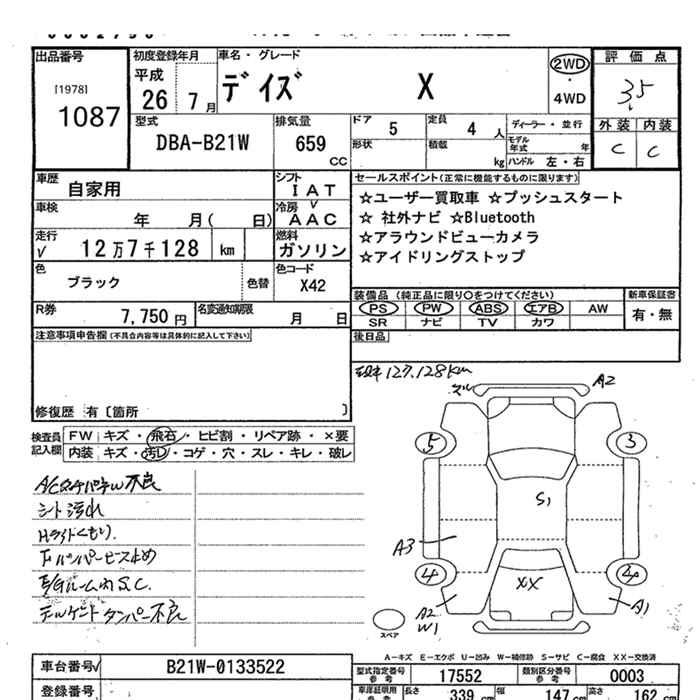 出品番号
[1978]
1087
初度登録年月
平成
26 年 7 月
車名・グレード
デイズ X
2WD
・
4WD
評価点
3.5
外装 内装
C C
型式
DBA-B21W
排気量
659 CC
ドア 5
定員 4 人
形状
積載 kg
ディーラー・並行
モデル年式 年
ハンドル 左・右
車歴 自家用
シフト
I A T
車検 年 月( 日)
冷房
A A C
走行
12 万 7 千 128 km
燃料
ガソリン
色
ブラック
色替
色コード
X42
R券 7,750 円
名変通知期限 月 日
セールスポイント(正常に機能するものに限ります)
☆ユーザー買取車 ☆プッシュスタート
☆ 社外ナビ ☆Bluetooth
☆アラウンドビューカメラ
☆アイドリングストップ
装備品 (純正品に限り○をつけてください)
新車保証書
PS PW ABS エアB AW
SR ナビ TV カワ
有・無
後日品
注意事項申告欄(不具合内容等は具体的に記入して下さい)
修復歴 有〔箇所 〕
検査員記入欄
FW キズ・飛石・ヒビ割・リペア跡・×要
内装 キズ・汚れ・コゲ・穴・スレ・キレ・破レ
127,128km
A/Cタッチパネル不良
シート汚れ
Hライトくもり.
Fバンパービス止め
E/Gルーム内S.C.
テールゲートダンパー不良
A2
5
3
S1
A3
4
4
XX
A2
W1
A1
スペア
A-キズ E-エクボ U-凹み W-補修跡 S-サビ C-腐食 XX-交換済
車台番号 B21W-0133522
登録番号
型式指定番号
参考
17552
類別区分番号
参考
0003
車庫証明用
参考
長さ 339 cm
幅 147 cm
高さ 162 cm